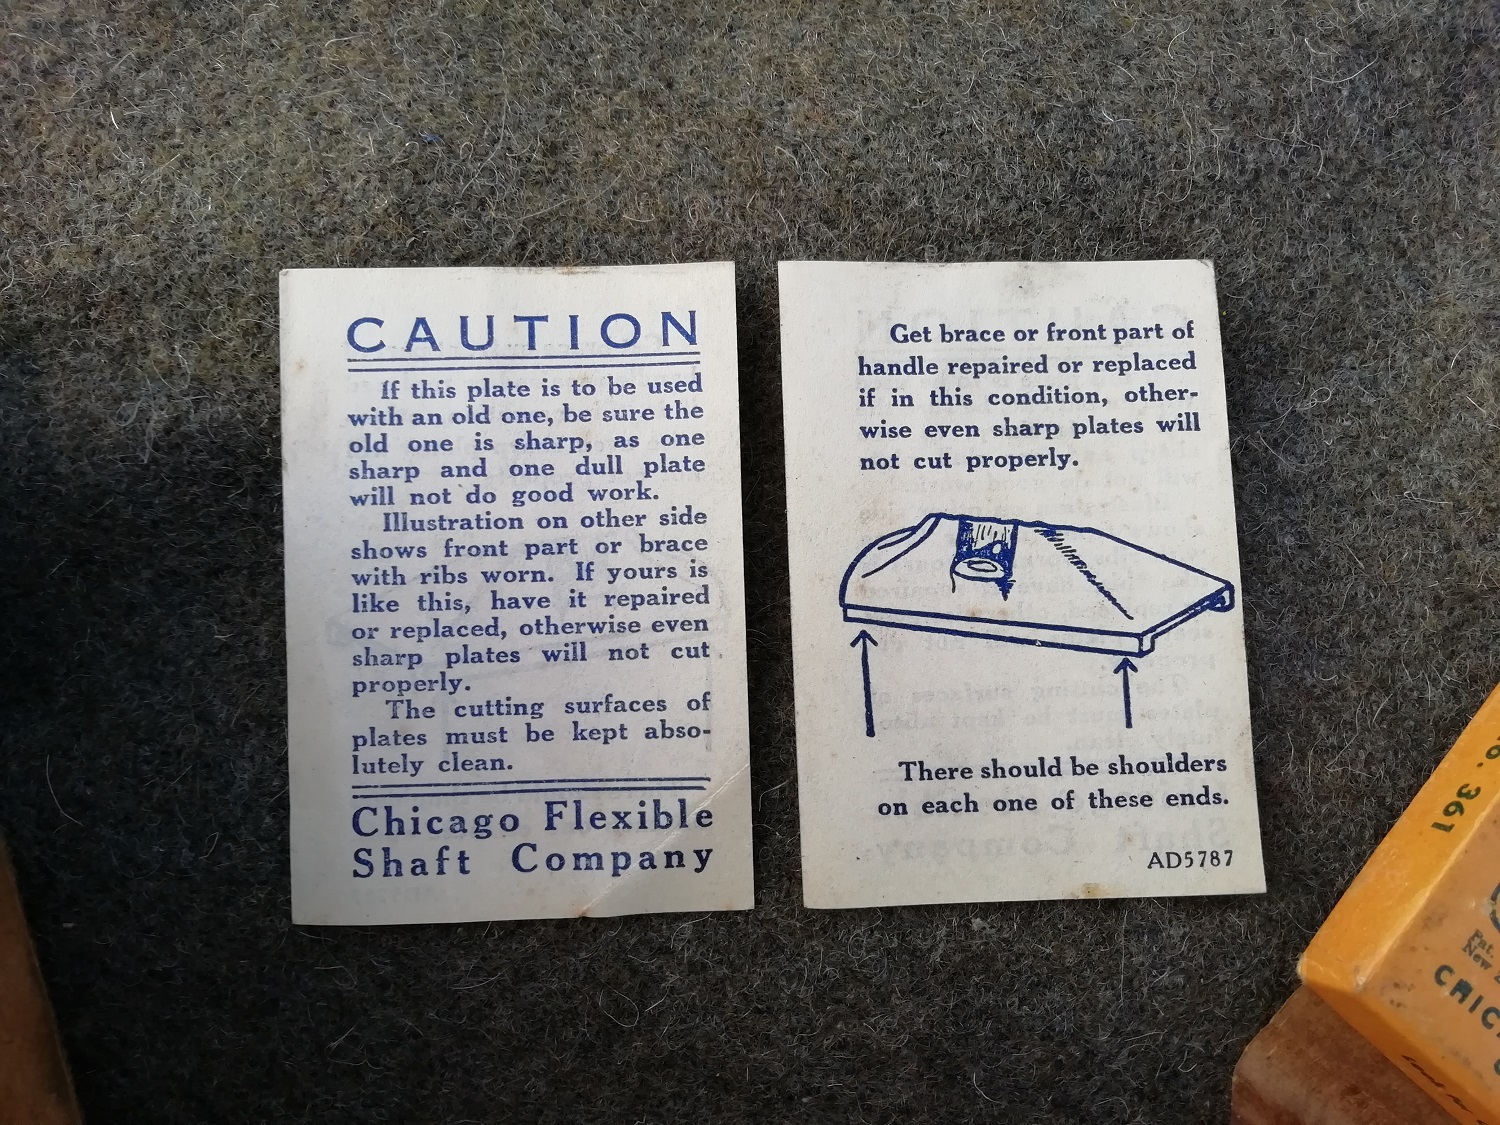 CAUTION
If this plate is to be used
with an old one, be sure the
old one is sharp, as one
sharp and one dull plate
will not do good work.
Illustration on other side
shows front part or brace
with ribs worn. If yours is
like this, have it repaired
or replaced, otherwise even
sharp plates will not cut
properly.
The cutting surfaces of
plates must be kept abso-
lutely clean.
Chicago Flexible
Shaft Company
Get brace or front part of
handle repaired or replaced
if in this condition, other-
wise even sharp plates will
not cut properly.
There should be shoulders
on each one of these ends.
AD5787
361
Pat.
New
CHIC